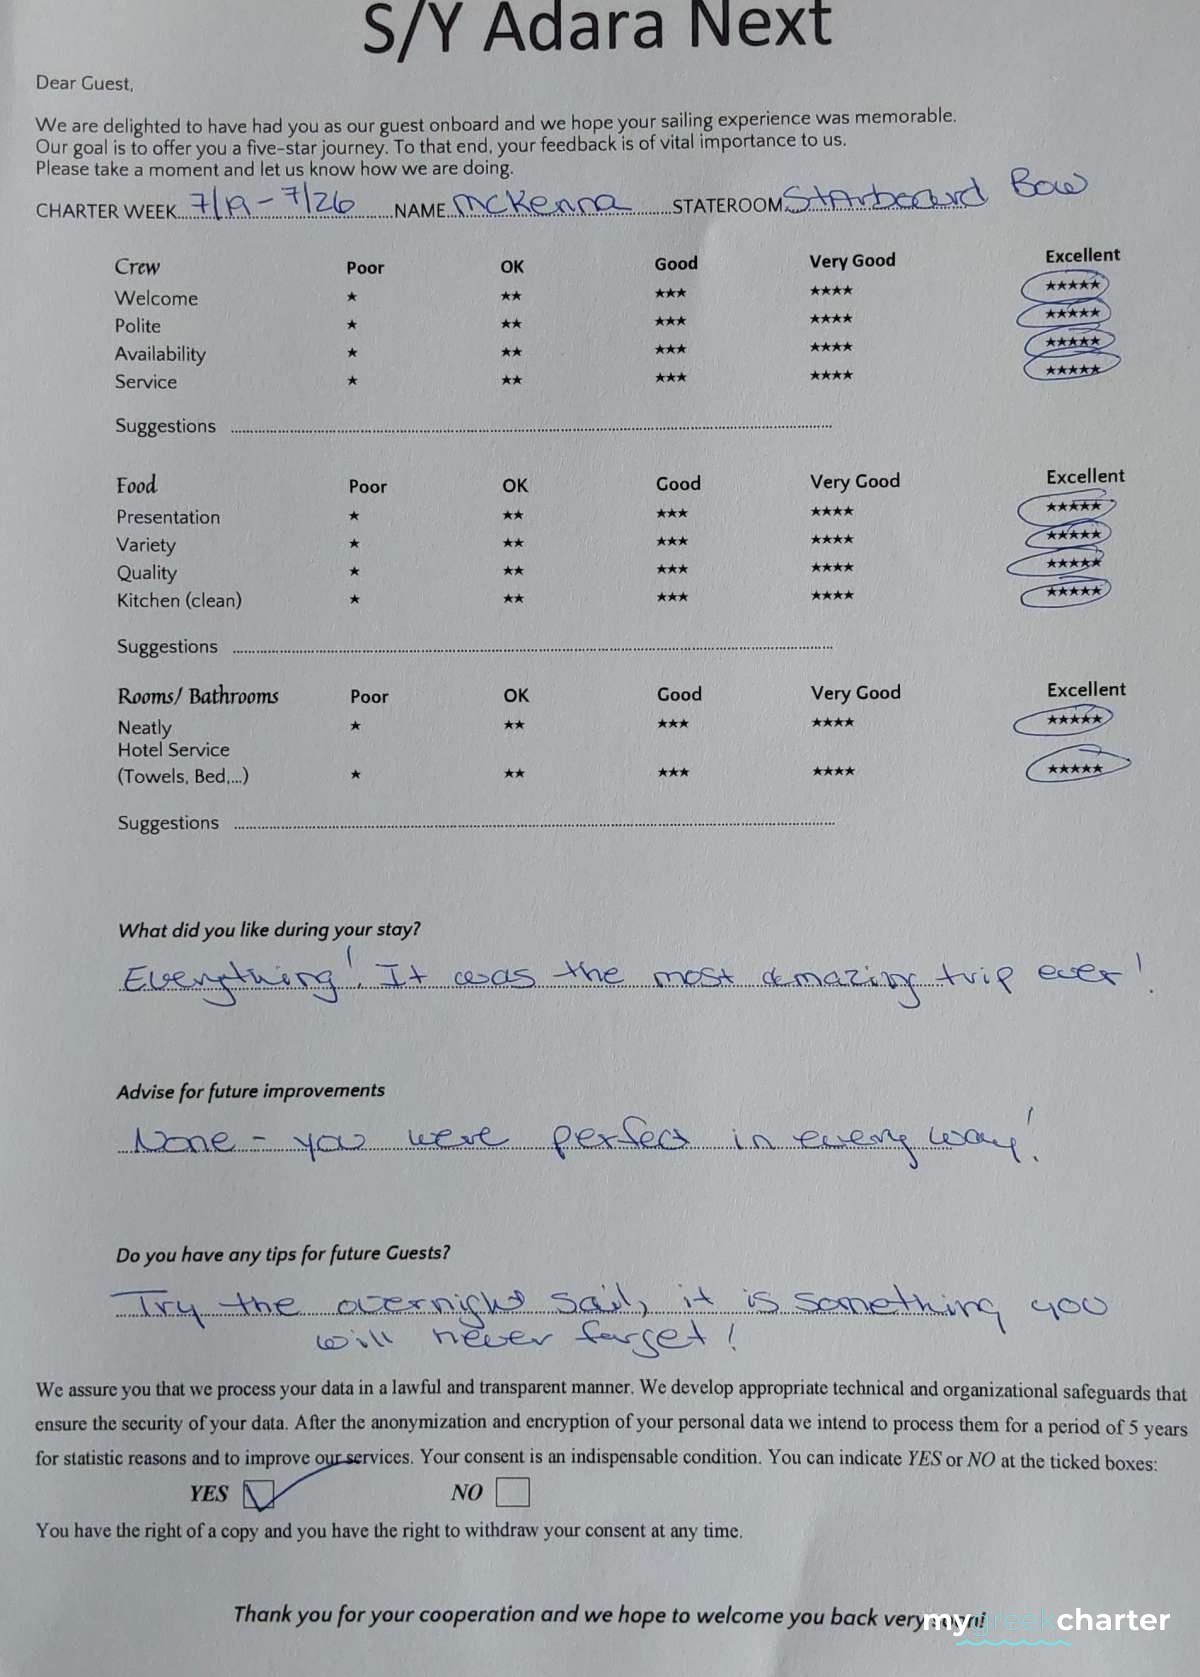 S/Y Adara Next
Dear Guest,
We are delighted to have had you as our guest onboard and we hope your sailing experience was memorable.
Our goal is to offer you a five-star journey. To that end, your feedback is of vital importance to us.
Please take a moment and let us know how we are doing.
CHARTER WEEK 7/19 - 7/26 NAME McKenna STATEROOM Starboard Bow
Crew Poor OK Good Very Good Excellent
Welcome ★ ★★ ★★★ ★★★★ ★★★★★
Polite ★ ★★ ★★★ ★★★★ ★★★★★
Availability ★ ★★ ★★★ ★★★★ ★★★★★
Service ★ ★★ ★★★ ★★★★ ★★★★★
Suggestions
Food Poor OK Good Very Good Excellent
Presentation ★ ★★ ★★★ ★★★★ ★★★★★
Variety ★ ★★ ★★★ ★★★★ ★★★★★
Quality ★ ★★ ★★★ ★★★★ ★★★★★
Kitchen (clean) ★ ★★ ★★★ ★★★★ ★★★★★
Suggestions
Rooms/ Bathrooms Poor OK Good Very Good Excellent
Neatly ★ ★★ ★★★ ★★★★ ★★★★★
Hotel Service
(Towels, Bed,...) ★ ★★ ★★★ ★★★★ ★★★★★
Suggestions
What did you like during your stay?
Everything! It was the most amazing trip ever!
Advise for future improvements
None - you were perfect in every way!
Do you have any tips for future Guests?
Try the overnight sail, it is something you
will never forget!
We assure you that we process your data in a lawful and transparent manner. We develop appropriate technical and organizational safeguards that
ensure the security of your data. After the anonymization and encryption of your personal data we intend to process them for a period of 5 years
for statistic reasons and to improve our services. Your consent is an indispensable condition. You can indicate YES or NO at the ticked boxes:
YES NO
You have the right of a copy and you have the right to withdraw your consent at any time.
Thank you for your cooperation and we hope to welcome you back very soon!
mygreekcharter